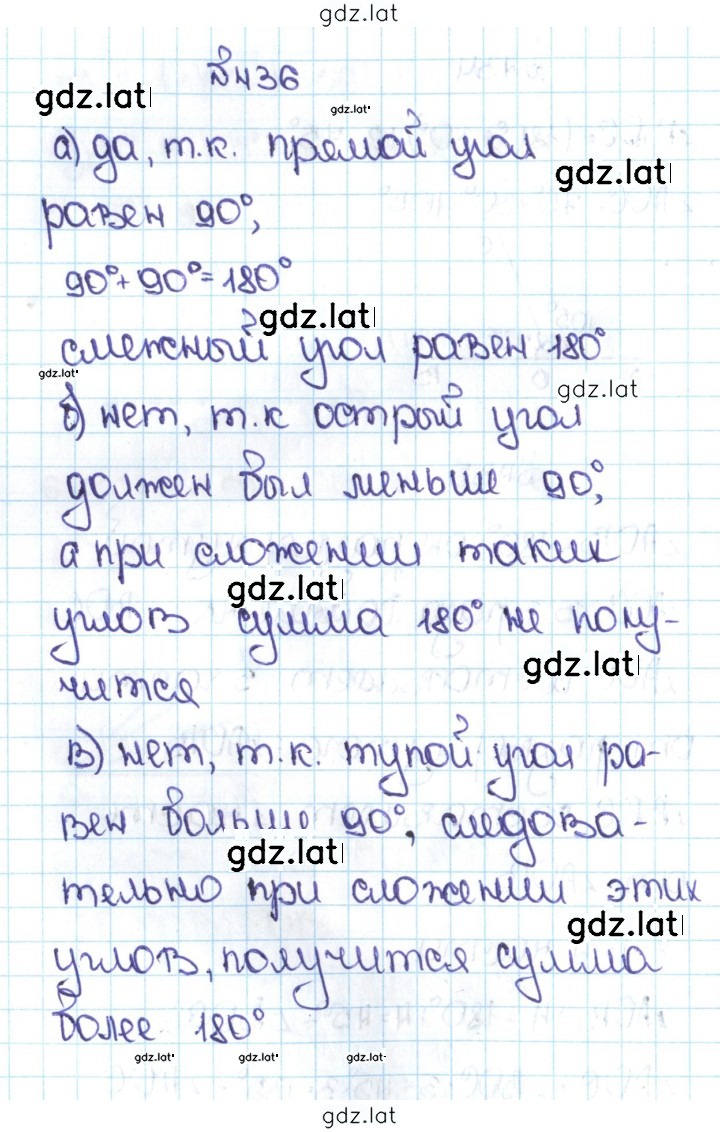 gdz.lat
№436
gdz.lat
gdz.lat
а) да, т.к. прямой угол
gdz.lat
равен 90°,
90°+90°=180°
gdz.lat
смежный угол равен 180°
gdz.lat
gdz.lat
б) нет, т.к острый угол
должен был меньше 90°,
а при сложении таких
gdz.lat
углов сумма 180° не полу-
gdz.lat
чится
в) нет, т.к. тупой угол ра-
вен больше 90°, следова-
gdz.lat
тельно при сложении этих
gdz.lat
углов, получится сумма
более 180°
gdz.lat gdz.lat gdz.lat
gdz.lat